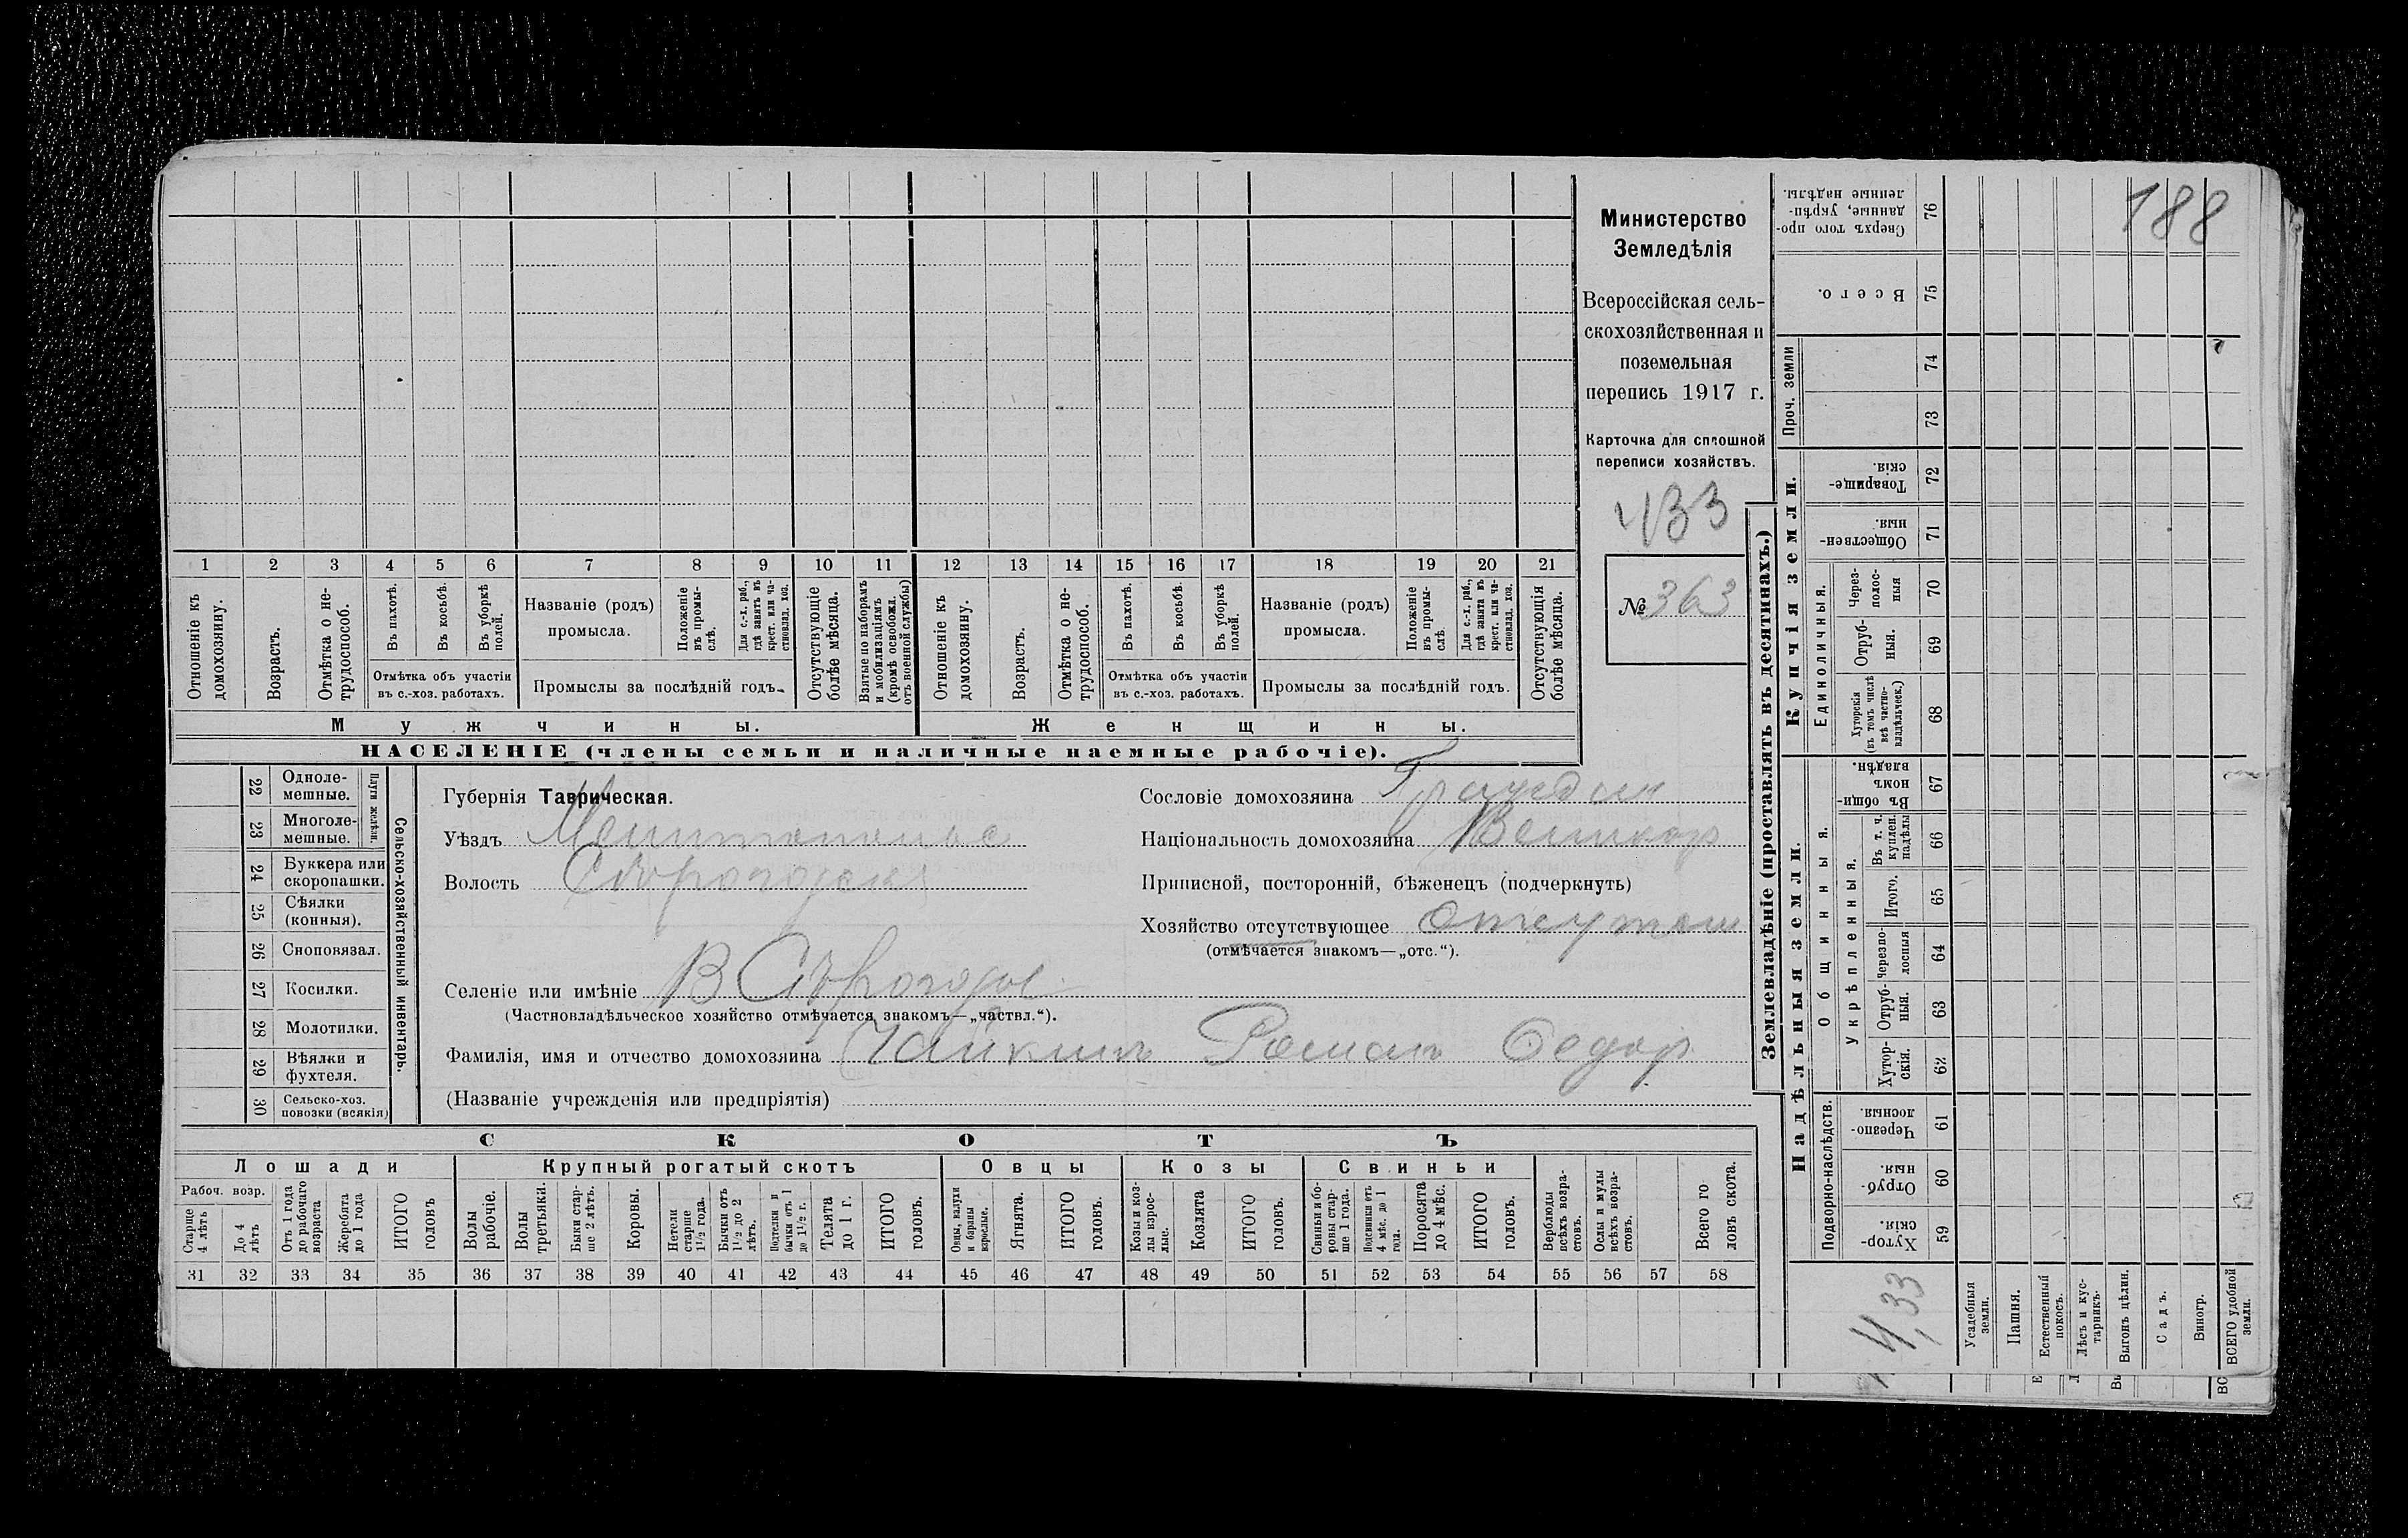 188
Министерство
Земледѣлія
Всероссійская сель-
скохозяйственная и
поземельная
перепись 1917 г.
Карточка для сплошной
переписи хозяйствъ.
433
№ 363
1 2 3 4 5 6 7 8 9 10 11 12 13 14 15 16 17 18 19 20 21
Отношеніе къ домохозяину.
Возрастъ.
Отмѣтка о не-трудоспособ.
Въ пахотѣ.
Въ косьбѣ.
Въ уборкѣ полей.
Отмѣтка объ участіи
въ с.-хоз. работахъ.
Названіе (родъ)
промысла.
Положеніе въ промы-слѣ.
Для с.-х. раб., гдѣ занятъ въ крест. или ча-стновлад. хоз.
Промыслы за послѣдній годъ.
Отсутствующіе болѣе мѣсяца.
Взятые по наборамъ и мобилизаціямъ (кромѣ освобожд. отъ военной службы)
Отношеніе къ домохозяину.
Возрастъ.
Отмѣтка о не-трудоспособ.
Въ пахотѣ.
Въ косьбѣ.
Въ уборкѣ полей.
Отмѣтка объ участіи
въ с.-хоз. работахъ.
Названіе (родъ)
промысла.
Положеніе въ промы-слѣ
Для с.-х. раб., гдѣ занята въ крест. или ча-стновлад. хоз.
Промыслы за послѣдній годъ.
Отсутствующія болѣе мѣсяца.
Мужчины.
Женщины.
НАСЕЛЕНІЕ (члены семьи и наличные наемные рабочіе).
22 Одноле-мешные.
23 Многоле-мешные.
Плуги желѣз.
24 Буккера или скоропашки.
25 Сѣялки (конныя).
26 Сноповязал.
27 Косилки.
28 Молотилки.
29 Вѣялки и фухтеля.
30 Сельско-хоз. повозки (всякія)
Сельско-хозяйственный инвентарь.
Губернія Таврическая.
Уѣздъ
Волость
Селеніе или имѣніе В Сѣрогозы
(Частновладѣльческое хозяйство отмѣчается знакомъ—„частвл.“).
Фамилія, имя и отчество домохозяина Чайкинъ Романъ Федор
(Названіе учрежденія или предпріятія)
Сословіе домохозяина
Національность домохозяина Великор
Приписной, посторонній, бѣженецъ (подчеркнуть)
Хозяйство отсутствующее
(отмѣчается знакомъ—„отс.“).
СКОТЪ
Лошади
Крупный рогатый скотъ
Овцы
Козы
Свиньи
Рабоч. возр.
Старше 4 лѣтъ
До 4 лѣтъ
Отъ 1 года до рабочаго возраста
Жеребята до 1 года
ИТОГО головъ
Волы рабочіе.
Волы третьяки.
Быки стар-ше 2 лѣтъ.
Коровы.
Нетели старше 1½ года.
Бычки отъ 1½ до 2 лѣтъ.
Подтелки и бычки отъ 1 до 1½ г.
Телята до 1 г.
ИТОГО головъ.
Овцы, валухи и бараны взрослые.
Ягнята.
ИТОГО головъ.
Козы и коз-лы взрос-лые.
Козлята
ИТОГО головъ.
Свиньи и бо-ровы стар-ше 1 года.
Подсвинки отъ 4 мѣс. до 1 года.
Поросята до 4 мѣс.
ИТОГО головъ.
Верблюды всѣхъ возра-стовъ.
Ослы и мулы всѣхъ возра-стовъ.
Всего го-ловъ скота.
31 32 33 34 35 36 37 38 39 40 41 42 43 44 45 46 47 48 49 50 51 52 53 54 55 56 57 58
Землевладѣніе (проставлять въ десятинахъ.)
Надѣльныя земли.
Купчія земли.
Проч. земли
Подворно-наслѣдств.
Общинныя.
Укрѣпленныя.
Единоличныя.
Хутор-скія. 59
Отруб-ныя. 60
Черезпо-лосныя. 61
Хутор-скія. 62
Отруб-ныя. 63
Черезпо-лосныя 64
Итого. 65
Въ т. ч. куплен. надѣлы 66
Въ общин-номъ владѣн. 67
Хуторскія (въ томъ числѣ всѣ частно-владѣльческ.) 68
Отруб-ныя. 69
Через-полос-ныя 70
Обществен-ныя. 71
Товарище-скія. 72
73
74
Всего. 75
Сверхъ того про-данные, укрѣп-ленные надѣлы. 76
Усадебныя земли.
Пашня.
Естественный покосъ.
Лѣсъ и кус-тарникъ.
Выгонъ цѣлин.
Садъ.
Виногр.
ВСЕГО удобной земли.